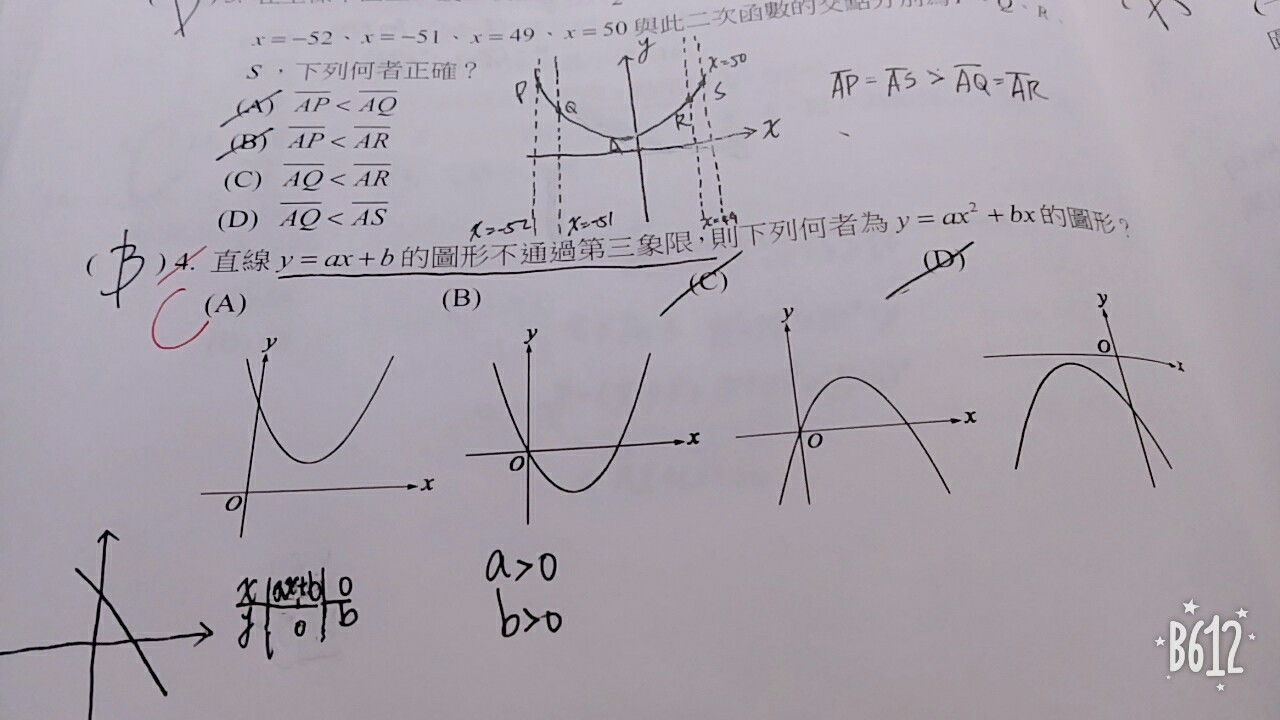 x=−52、x=−51、x=49、x=50與此二次函數的交點分別為P、Q、R、
S，下列何者正確？
(A) AP < AQ
(B) AP < AR
(C) AQ < AR
(D) AQ < AS
y
x=50
P
Q
R
S
A
x
x=-52
x=-51
x=49
AP = AS > AQ = AR
( B ) 4. 直線 y=ax+b 的圖形不通過第三象限，則下列何者為 y=ax²+bx 的圖形？
C
(A) (B) (C) (D)
y
O
x
y
O
x
y
O
x
y
O
x
x ax+b 0
y 0 b
a>0
b>0
B612